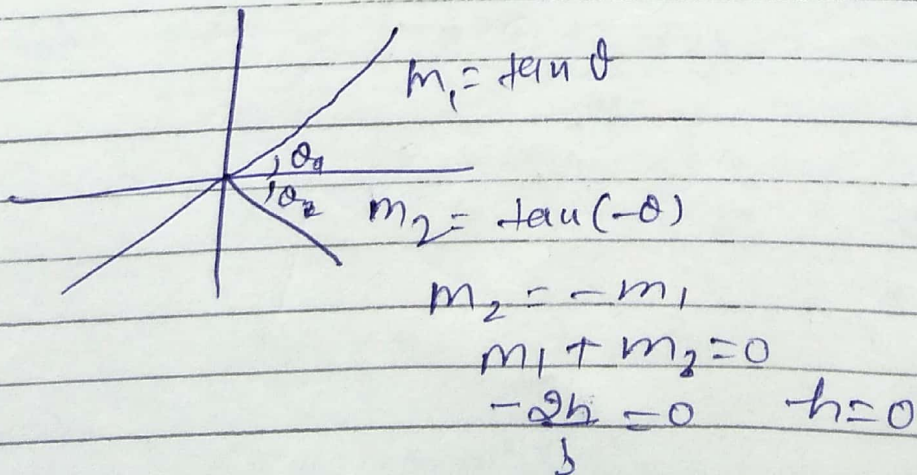 m₁ = tan θ
θ₁
θ₂ m₂ = tan(-θ)
m₂ = -m₁
m₁ + m₂ = 0
-2h/b = 0 h = 0